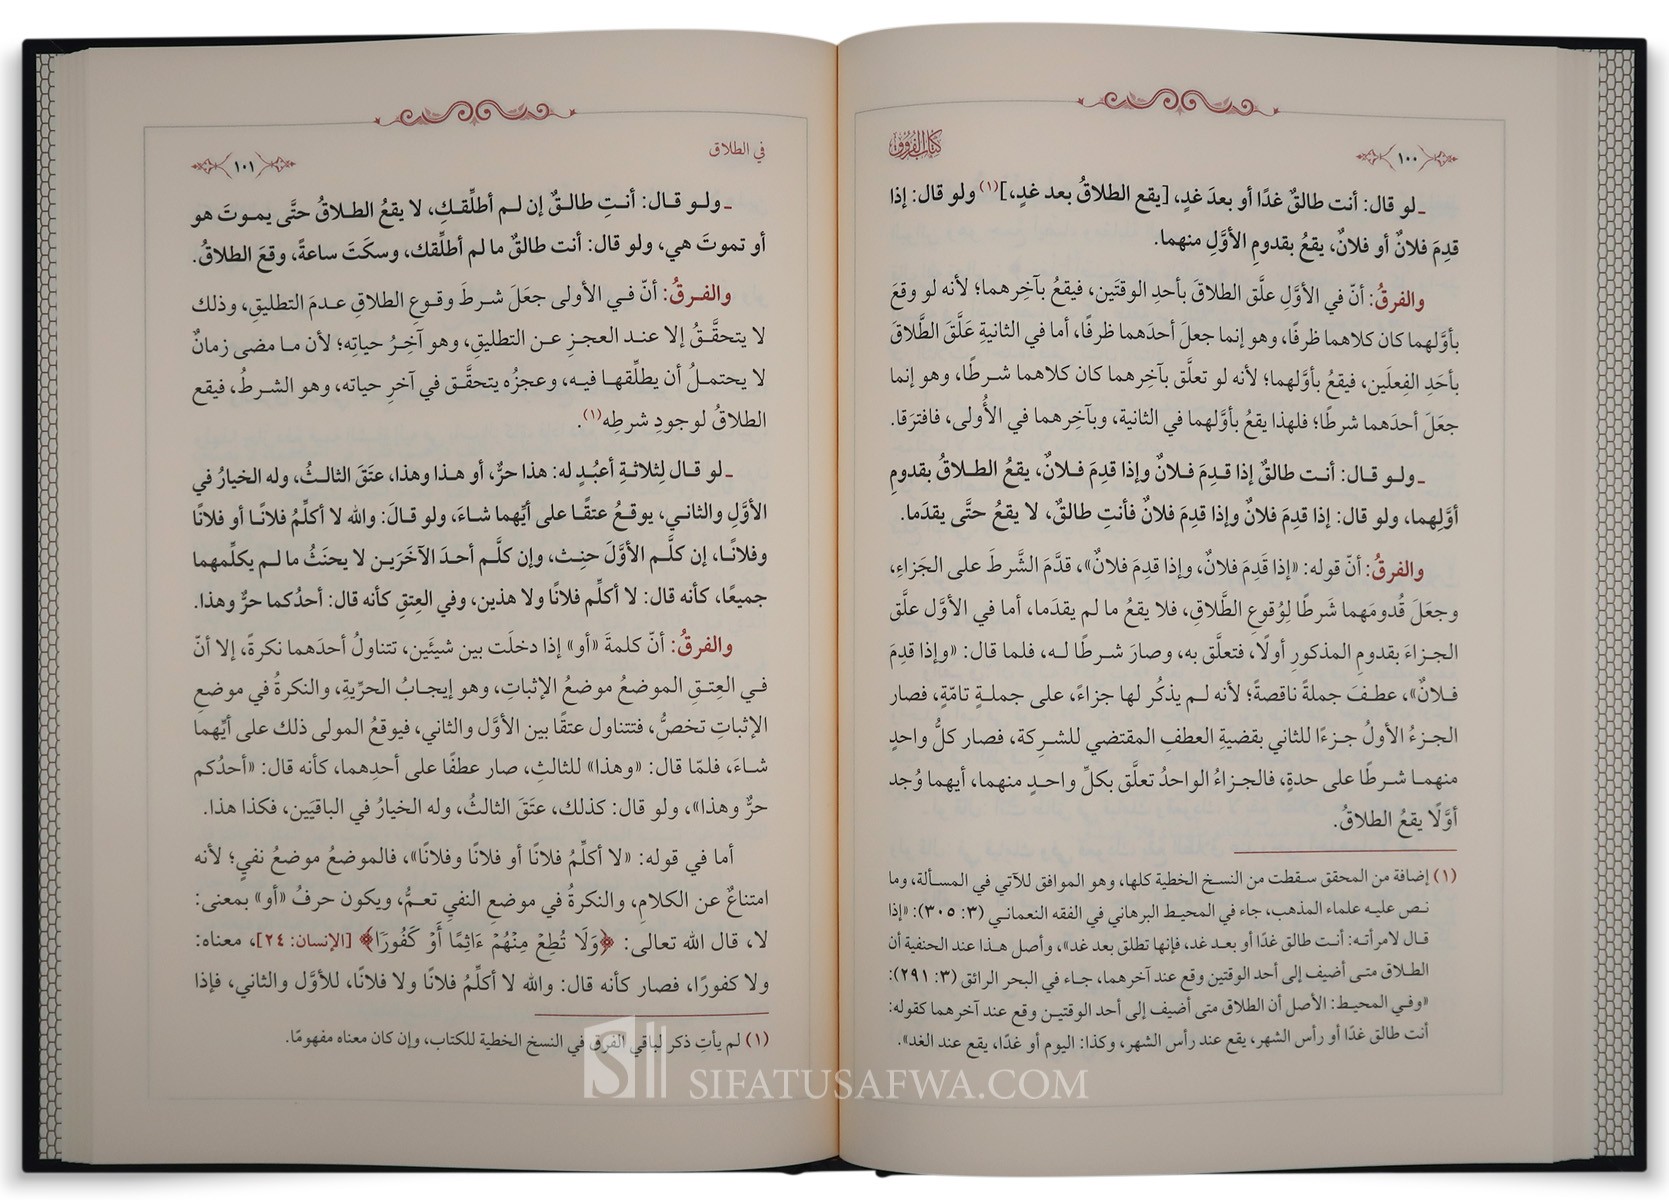 كتاب الفروق
١٠٠
ـ لو قال: أنت طالقٌ غدًا أو بعدَ غدٍ، [يقع الطلاقُ بعد غدٍ،](١) ولو قال: إذا
قدِمَ فلانٌ أو فلانٌ، يقعُ بقدومِ الأوَّلِ منهما.
والفرقُ: أنّ في الأوَّلِ علَّق الطلاقَ بأحدِ الوقتَين، فيقعُ بآخِرِهما؛ لأنه لو وقعَ
بأوَّلهما كان كلاهما ظرفًا، وهو إنما جعلَ أحدَهما ظرفًا، أما في الثانيةِ عَلَّقَ الطَّلاقَ
بأحَدِ الفِعلَين، فيقعُ بأوَّلهما؛ لأنه لو تعلَّق بآخِرهما كان كلاهما شرطًا، وهو إنما
جعَلَ أحدَهما شرطًا؛ فلهذا يقعُ بأوَّلهما في الثانية، وبآخِرهما في الأُولى، فافترَقا.
ـ ولو قال: أنت طالقٌ إذا قدِمَ فلانٌ وإذا قدِمَ فلانٌ، يقعُ الطلاقُ بقدومِ
أوَّلِهما، ولو قال: إذا قدِمَ فلانٌ وإذا قدِمَ فلانٌ فأنتِ طالقٌ، لا يقعُ حتَّى يقدَما.
والفرقُ: أنّ قوله: «إذا قَدِمَ فلانٌ، وإذا قدِمَ فلانٌ»، قدَّمَ الشَّرطَ على الجَزاءِ،
وجعَلَ قُدومَهما شَرطًا لِوُقوعِ الطَّلاقِ، فلا يقعُ ما لم يقدَما، أما في الأوَّل علَّق
الجزاءَ بقدومِ المذكورِ أولًا، فتعلَّق به، وصارَ شرطًا له، فلما قال: «وإذا قدِمَ
فلانٌ»، عطفَ جملةً ناقصةً؛ لأنه لم يذكُر لها جزاءً، على جملةٍ تامّةٍ، فصار
الجزءُ الأولُ جزءًا للثاني بقضيةِ العطفِ المقتضي للشركة، فصار كلُّ واحدٍ
منهما شرطًا على حدةٍ، فالجزاءُ الواحدُ تعلَّق بكلِّ واحدٍ منهما، أيهما وُجد
أوَّلًا يقعُ الطلاقُ.
(١) إضافة من المحقق سقطت من النسخ الخطية كلها، وهو الموافق للآتي في المسألة، وما
نص عليه علماء المذهب، جاء في المحيط البرهاني في الفقه النعماني (٣: ٣٠٥): «إذا
قال لامرأته: أنت طالق غدًا أو بعد غد، فإنها تطلق بعد غد»، وأصل هذا عند الحنفية أن
الطلاق متى أضيف إلى أحد الوقتين وقع عند آخرهما، جاء في البحر الرائق (٣: ٢٩١):
«وفي المحيط: الأصل أن الطلاق متى أضيف إلى أحد الوقتين وقع عند آخرهما كقوله:
أنت طالق غدًا أو رأس الشهر، يقع عند رأس الشهر، وكذا: اليوم أو غدًا، يقع عند الغد».
في الطلاق
١٠١
ـ ولو قال: أنتِ طالقٌ إن لم أطلِّقكِ، لا يقعُ الطلاقُ حتَّى يموتَ هو
أو تموتَ هي، ولو قال: أنت طالقٌ ما لم أطلِّقك، وسكَتَ ساعةً، وقعَ الطلاقُ.
والفرقُ: أنّ في الأولى جعَلَ شرطَ وقوعِ الطلاقِ عدمَ التطليقِ، وذلك
لا يتحقَّقُ إلا عند العجزِ عن التطليقِ، وهو آخِرُ حياتِه؛ لأن ما مضى زمانٌ
لا يحتملُ أن يطلِّقها فيه، وعجزُه يتحقَّق في آخرِ حياته، وهو الشرطُ، فيقع
الطلاقُ لوجودِ شرطِه(١).
ـ لو قال لِثلاثةِ أعبُدٍ له: هذا حرٌّ، أو هذا وهذا، عتَقَ الثالثُ، وله الخيارُ في
الأوَّلِ والثاني، يوقعُ عتقًا على أيِّهما شاءَ، ولو قالَ: والله لا أكلِّمُ فلانًا أو فلانًا
وفلانًا، إن كلَّم الأوَّلَ حنِث، وإن كلَّم أحدَ الآخَرَين لا يحنَثُ ما لم يكلِّمهما
جميعًا، كأنه قال: لا أكلِّم فلانًا ولا هذين، وفي العِتقِ كأنه قال: أحدُكما حرٌّ وهذا.
والفرقُ: أنّ كلمةَ «أو» إذا دخلَت بين شيئَين، تتناولُ أحدَهما نكرةً، إلا أنّ
في العِتقِ الموضعُ موضعُ الإثباتِ، وهو إيجابُ الحرِّيةِ، والنكرةُ في موضعِ
الإثباتِ تخصُّ، فتتناول عتقًا بين الأوَّل والثاني، فيوقعُ المولى ذلك على أيِّهما
شاءَ، فلمّا قال: «وهذا» للثالثِ، صار عطفًا على أحدِهما، كأنه قال: «أحدُكم
حرٌّ وهذا»، ولو قال: كذلك، عتَقَ الثالثُ، وله الخيارُ في الباقيَين، فكذا هذا.
أما في قوله: «لا أكلِّمُ فلانًا أو فلانًا وفلانًا»، فالموضعُ موضعُ نفيٍ؛ لأنه
امتناعٌ عن الكلامِ، والنكرةُ في موضعِ النفيِ تعمُّ، ويكون حرفُ «أو» بمعنى:
لا، قال الله تعالى: ﴿وَلَا تُطِعْ مِنْهُمْ ءَاثِمًا أَوْ كَفُورًا﴾ [الإنسان: ٢٤]، معناه:
ولا كفورًا، فصار كأنه قال: والله لا أكلِّمُ فلانًا ولا فلانًا، للأوَّل والثاني، فإذا
(١) لم يأتِ ذكر لباقي الفرق في النسخ الخطية للكتاب، وإن كان معناه مفهومًا.
SIFATUSAFWA.COM